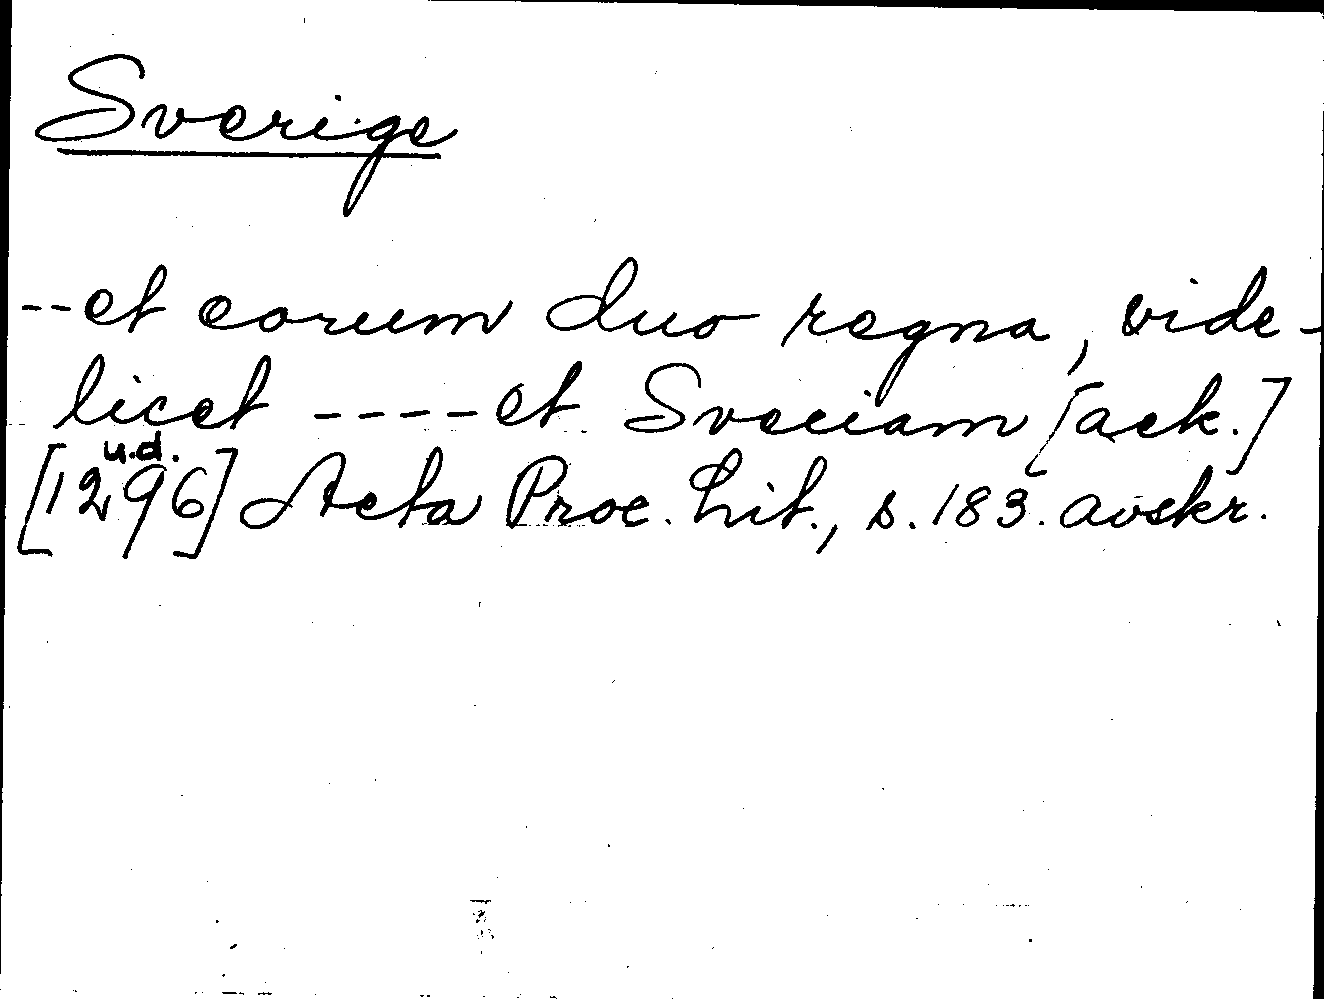 Sverige
--et eorum duo regna, vide-
licet ----et Sveciam [ack.]
u.d.
[1296] Acta Proc. Lit., s. 183. avskr.